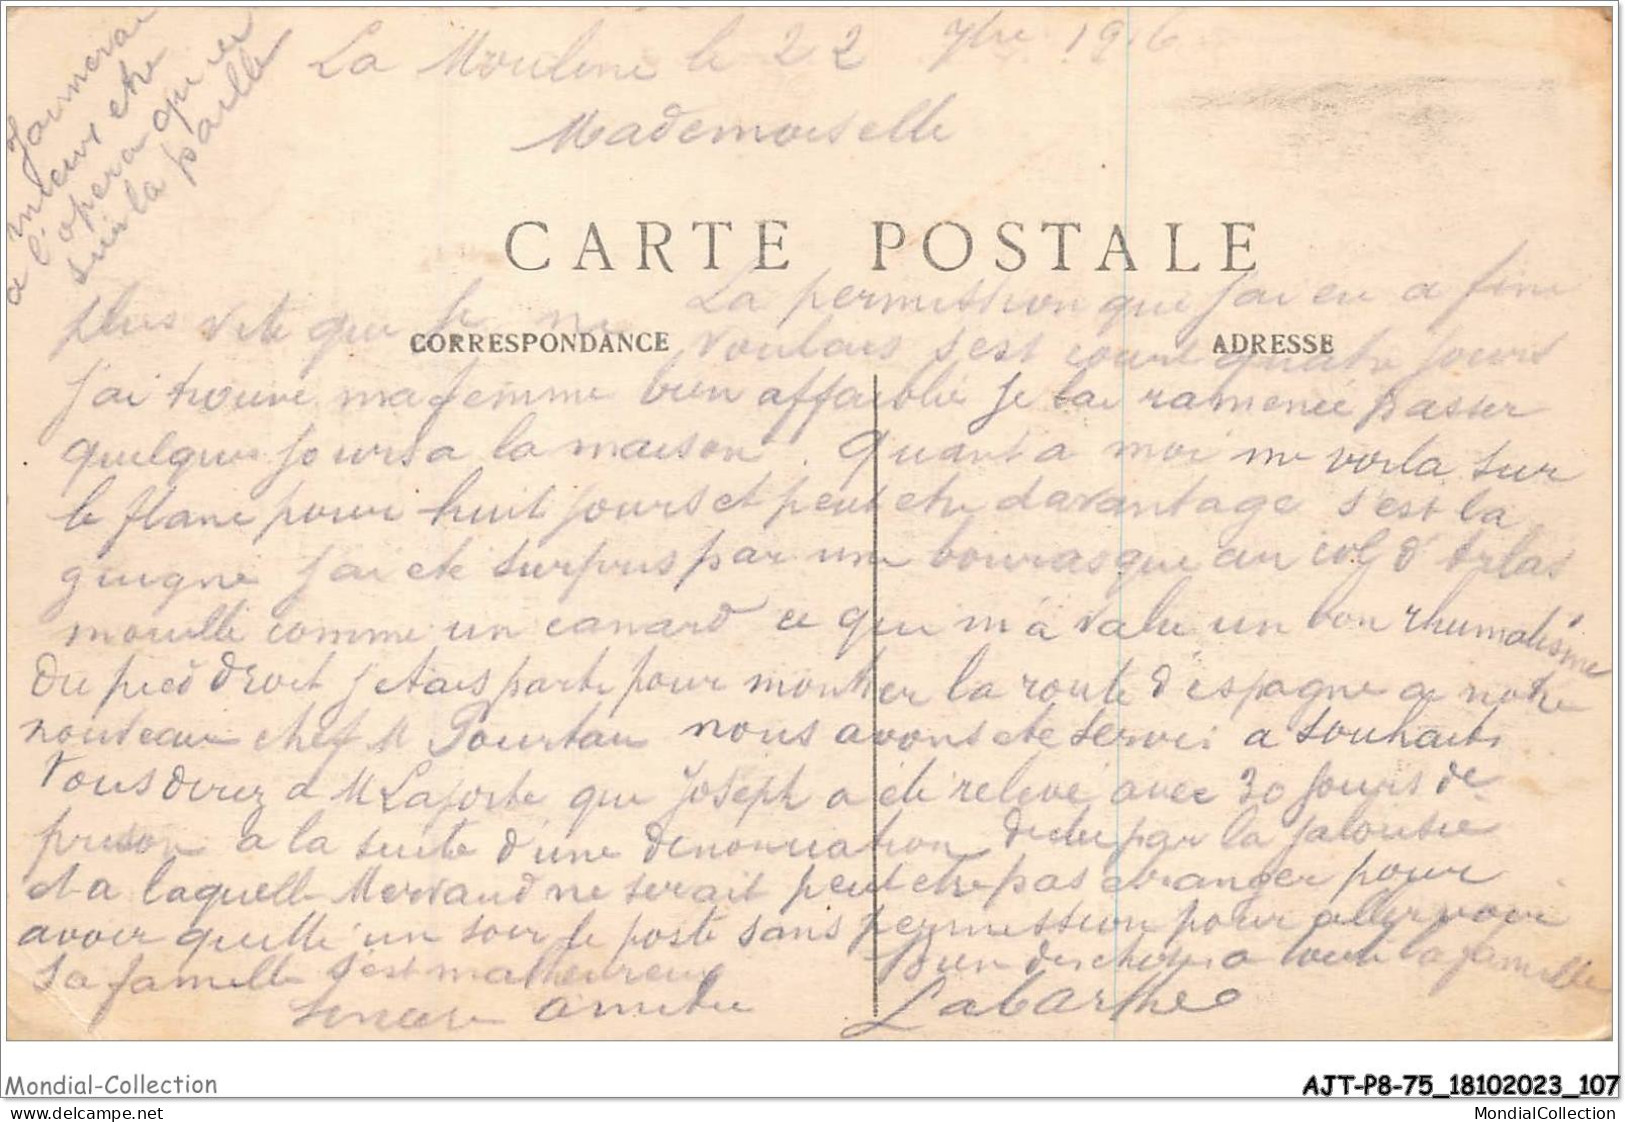 La Mouline le 22 7bre 1916
Mademoiselle
J'aimerai
mieux etre
a l'opera que
sur la paille
CARTE POSTALE
CORRESPONDANCE
ADRESSE
La permission que j'ai eu a fini
plus vite que je ne voulais s'est court quatre jours
j'ai trouvé ma femme bien affaiblie je l'ai ramenée passer
quelques jours a la maison. Quant a moi me voila sur
le flanc pour huit jours et peut etre davantage s'est la
guigne j'ai ete surpris par une bourasque au col d'Arlas
mouillé comme un canard ce qui m'a valu un bon rhumatisme
du pied droit j'etais parti pour montrer la route d'espagne a notre
nouveau chef M Pourtau nous avons ete servis a souhaits
Vous direz a M Laforte que Joseph a été relevé avec 30 jours de
prison a la suite d'une denonciation dictée par la jalousie
et a laquelle Mervaud ne serait peut etre pas etranger pour
avoir quitté un soir le poste sans permission pour aller voir
sa famille s'est malheureux
Bien des choses a toute la famille
sincere amitie
Labarthe
Mondial-Collection
AJT-P8-75_18102023_107
MondialCollection
www.delcampe.net